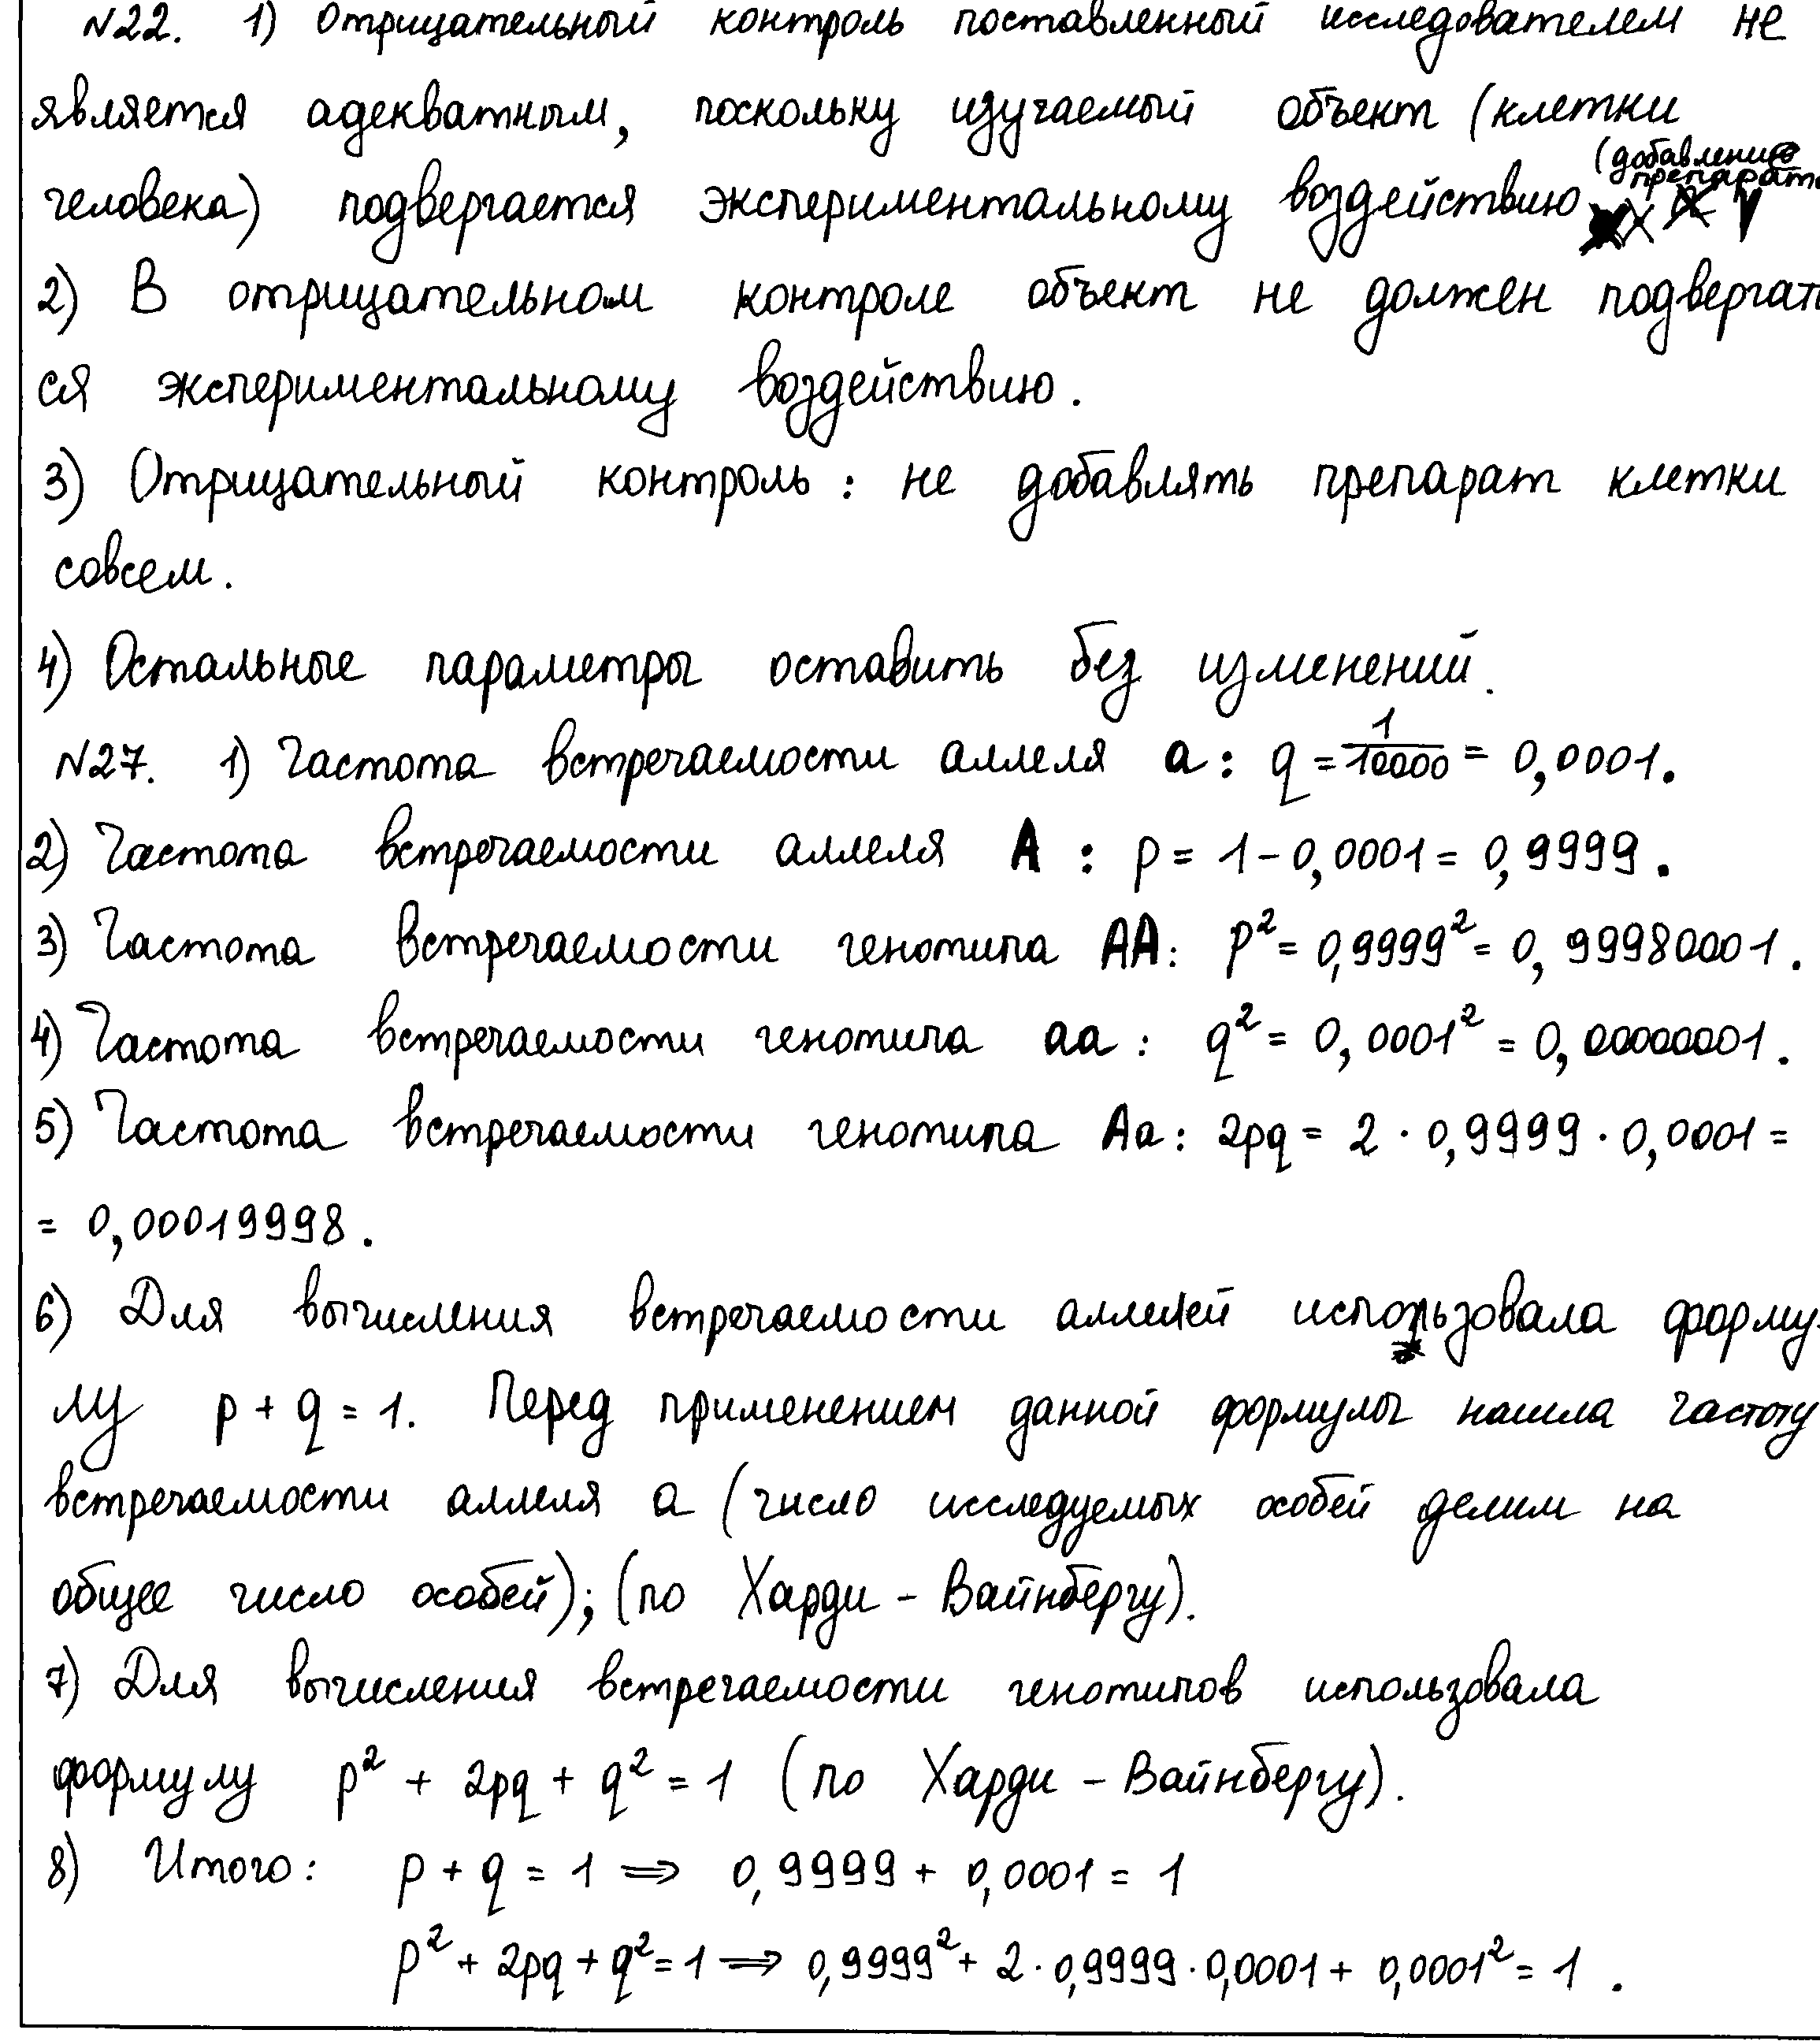 №22. 1) Отрицательный контроль поставленный исследователем не
является адекватным, поскольку изучаемый объект (клетки
(добавление
препарата
человека) подвергается экспериментальному воздействию
2) В отрицательном контроле объект не должен подвергать
ся экспериментальному воздействию.
3) Отрицательный контроль: не добавлять препарат клетки
совсем.
4) Остальные параметры оставить без изменений.
№27. 1) Частота встречаемости аллеля a: q = 1/10000 = 0,0001.
2) Частота встречаемости аллеля A: p = 1 - 0,0001 = 0,9999.
3) Частота встречаемости генотипа AA: p² = 0,9999² = 0,99980001.
4) Частота встречаемости генотипа aa: q² = 0,0001² = 0,00000001.
5) Частота встречаемости генотипа Aa: 2pq = 2 · 0,9999 · 0,0001 =
= 0,00019998.
6) Для вычисления встречаемости аллелей использовала форму-
лу p + q = 1. Перед применением данной формулы нашла частоту
встречаемости аллеля a (число исследуемых особей делим на
общее число особей); (по Харди - Вайнбергу).
7) Для вычисления встречаемости генотипов использовала
формулу p² + 2pq + q² = 1 (по Харди - Вайнбергу).
8) Итого: p + q = 1 ⟹ 0,9999 + 0,0001 = 1
p² + 2pq + q² = 1 ⟹ 0,9999² + 2 · 0,9999 · 0,0001 + 0,0001² = 1.